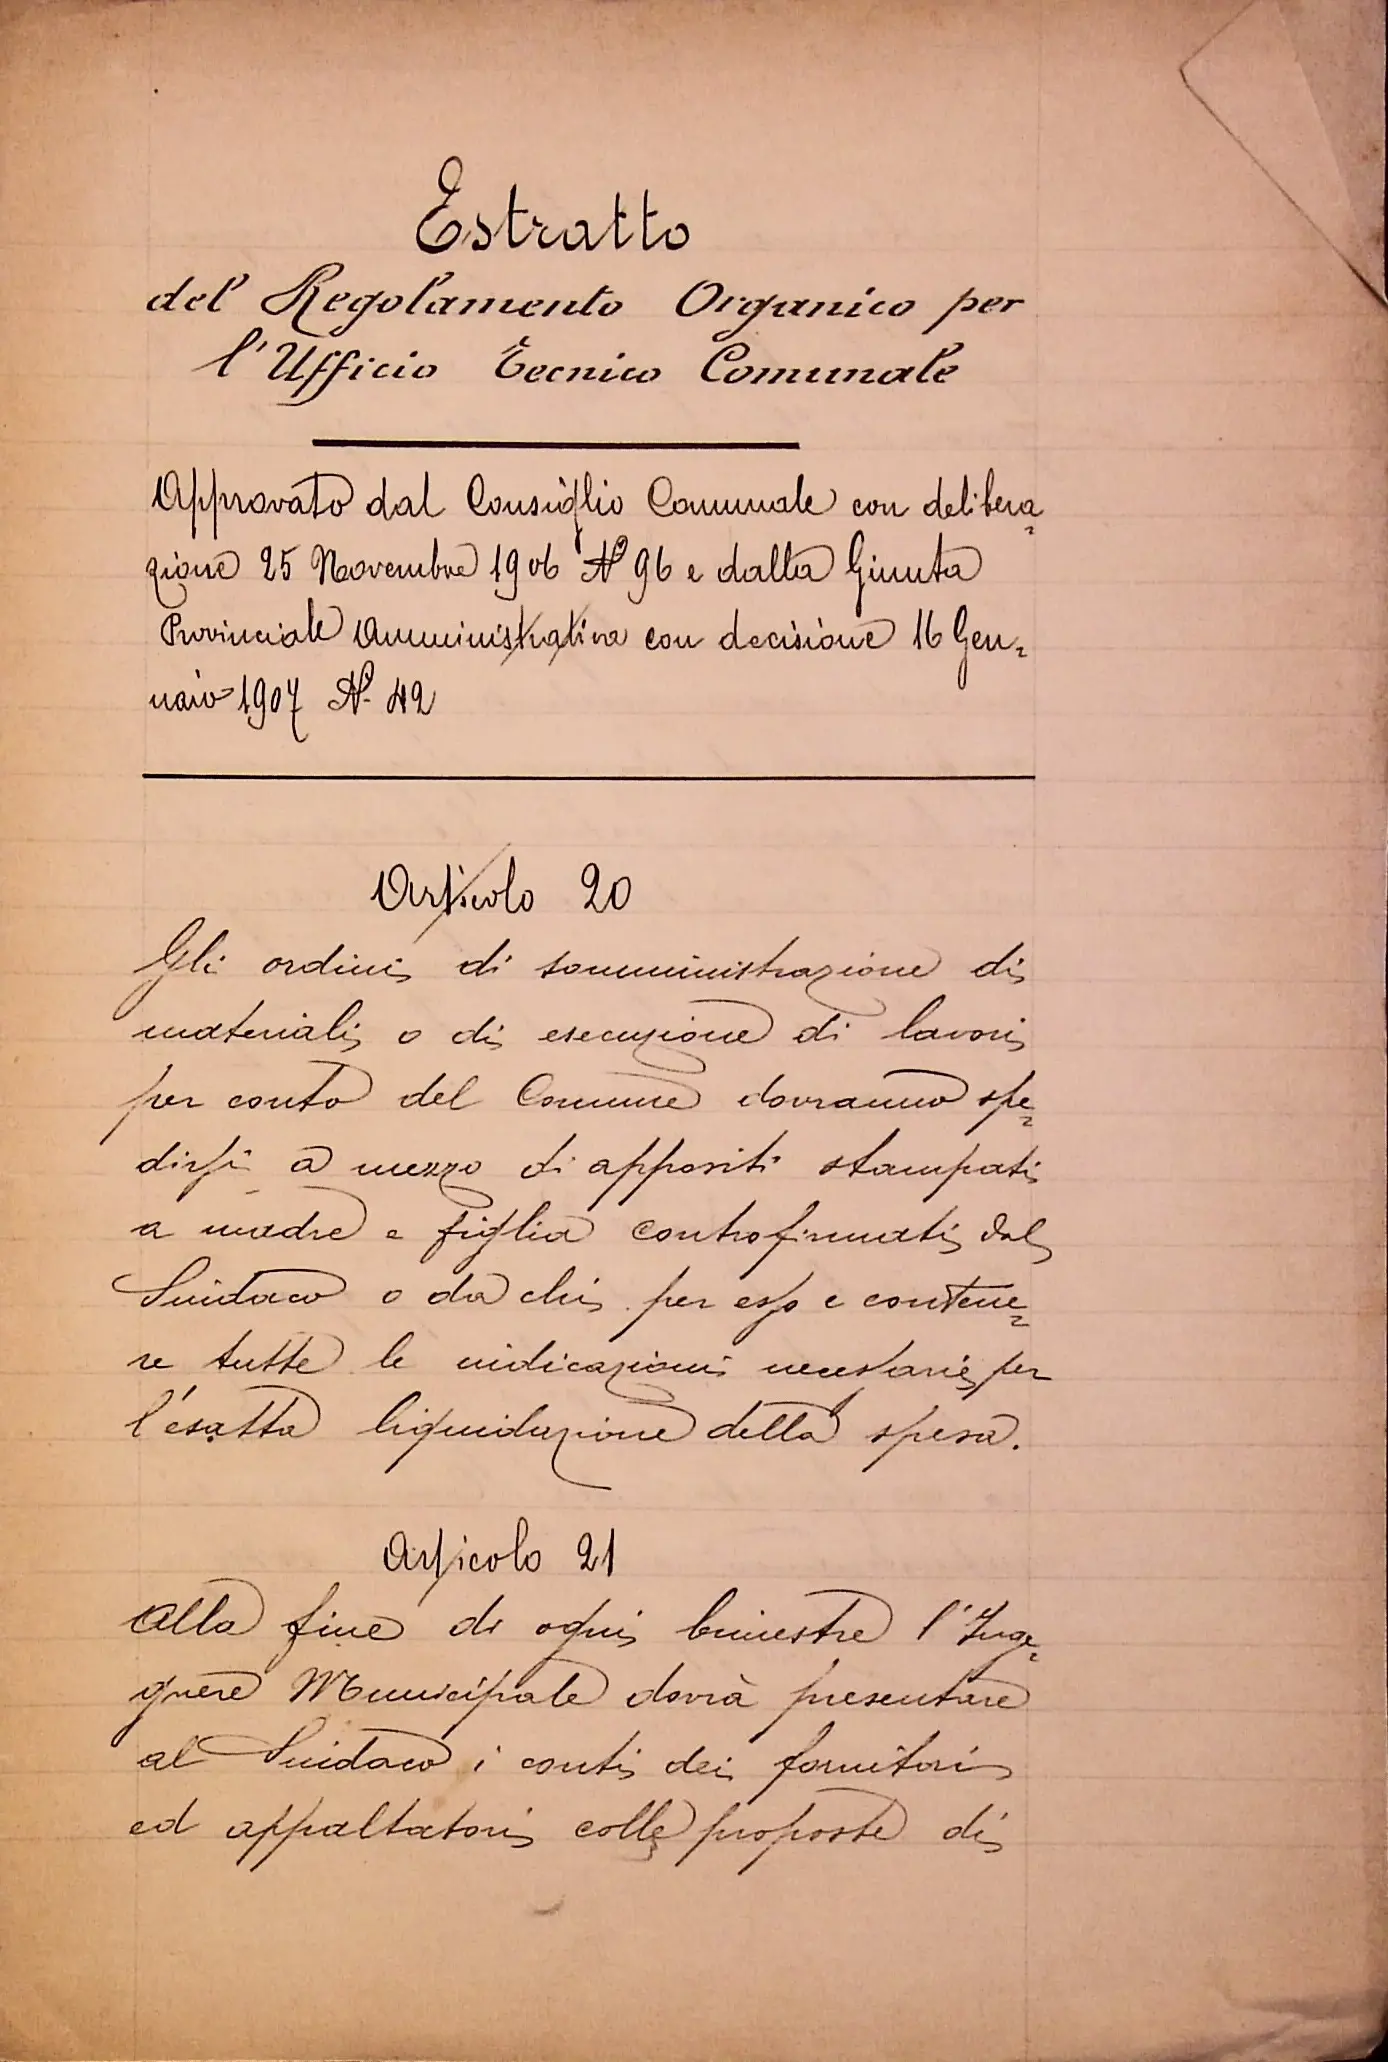 Estratto
del Regolamento Organico per
l'Ufficio Tecnico Comunale
Approvato dal Consiglio Comunale con delibera=
zione 25 Novembre 1906 N° 96 e dalla Giunta
Provinciale Amministrativa con decisione 16 Gen=
naio 1907 N. 42
Articolo 20
Gli ordini di somministrazione di
materiali o di esecuzione di lavori
per conto del Comune dovranno spe=
dirsi a mezzo di appositi stampati
a madre e figlia controfirmati dal
Sindaco o da chi per esso e contene=
re tutte le indicazioni necessarie per
l'esatta liquidazione della spesa.
Articolo 21
Alla fine di ogni bimestre l'Inge=
gnere Municipale dovrà presentare
al Sindaco i conti dei fornitori
ed appaltatori colle proposte di